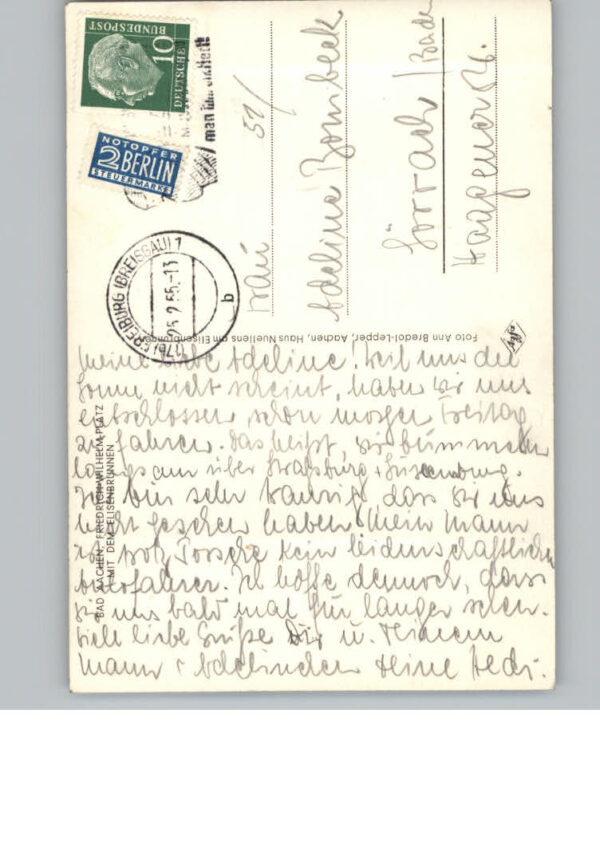 DEUTSCHE
BUNDESPOST
10
NOTOPFER
2 BERLIN
STEUERMARKE
(17b) FREIBURG (BREISGAU) 1
25.2.55.-13
b
Frau
51/
Adelina Bombeck
Lörrach / Baden
Haagener Str.
Foto Ann Bredol-Lepper, Aachen, Haus Nuellens am Elisenbrunnen
Agfa
BAD AACHEN, FRIEDRICH-WILHELM-PLATZ
MIT DEM ELISENBRUNNEN
Meine liebe Adeline! Weil uns die
Sonne nicht scheint, haben wir uns
entschlossen, schon morgen Freitag
zu fahren. Das heißt, wir bummeln
langsam über Straßburg + Luxemburg.
Ich bin sehr traurig, dass wir uns
nicht gesehen haben. Mein Mann
ist trotz Porsche kein leidenschaftlicher
Autofahrer. Ich hoffe dennoch, dass
wir uns bald mal für länger sehen.
Viele liebe Grüße Dir u. Deinem
Mann + Adelinchen Deine Hedi.